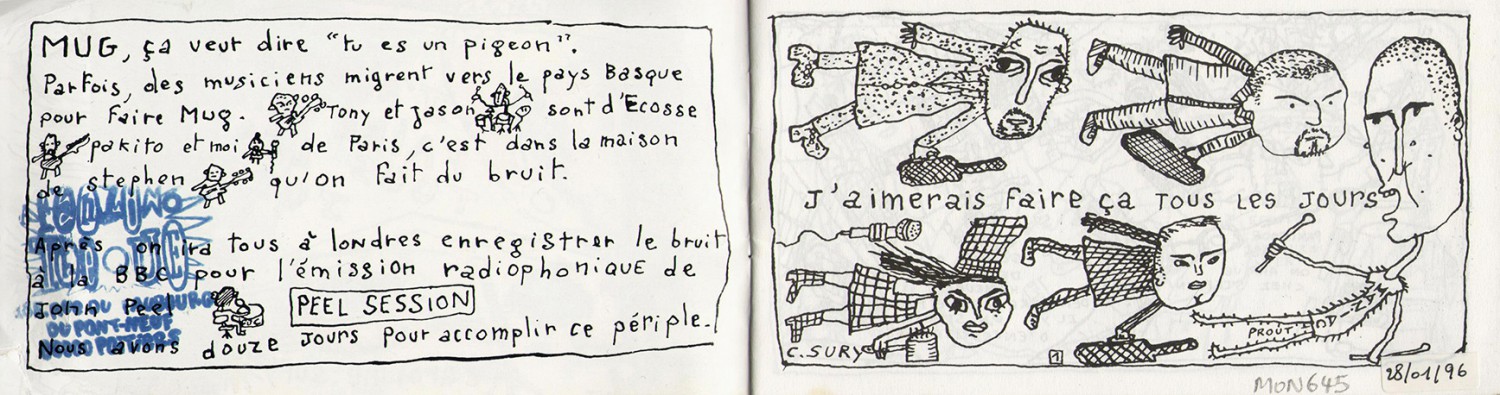 MUG, ça veut dire "tu es un pigeon".
Parfois, des musiciens migrent vers le pays Basque
pour faire Mug. Tony et Jason sont d'Ecosse
pakito et moi de Paris, c'est dans la maison
de stephen qu'on fait du bruit.
Après on ira tous à londres enregistrer le bruit
à la BBC pour l'émission radiophonique de
John Peel PEEL SESSION
Nous avons douze jours pour accomplir ce périple.
DU PONT-NEUF
J'aimerais faire ça tous les jours
PROUT
C. SURY
1
28/01/96
MON645